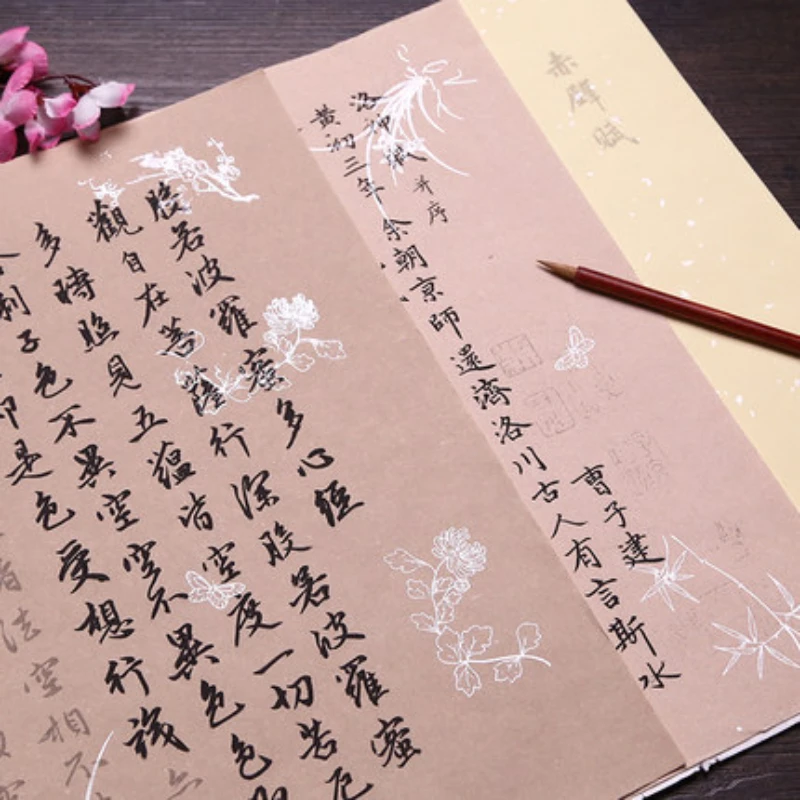 赤壁賦
洛神賦 并序
曹子建
黃初三年余朝京師還濟洛川古人有言斯水
般若波羅蜜多心經
觀自在菩薩行深般若波羅蜜
多時照見五蘊皆空度一切苦厄
利子色不異空空不異色色
即是色受想行識亦
法空相不